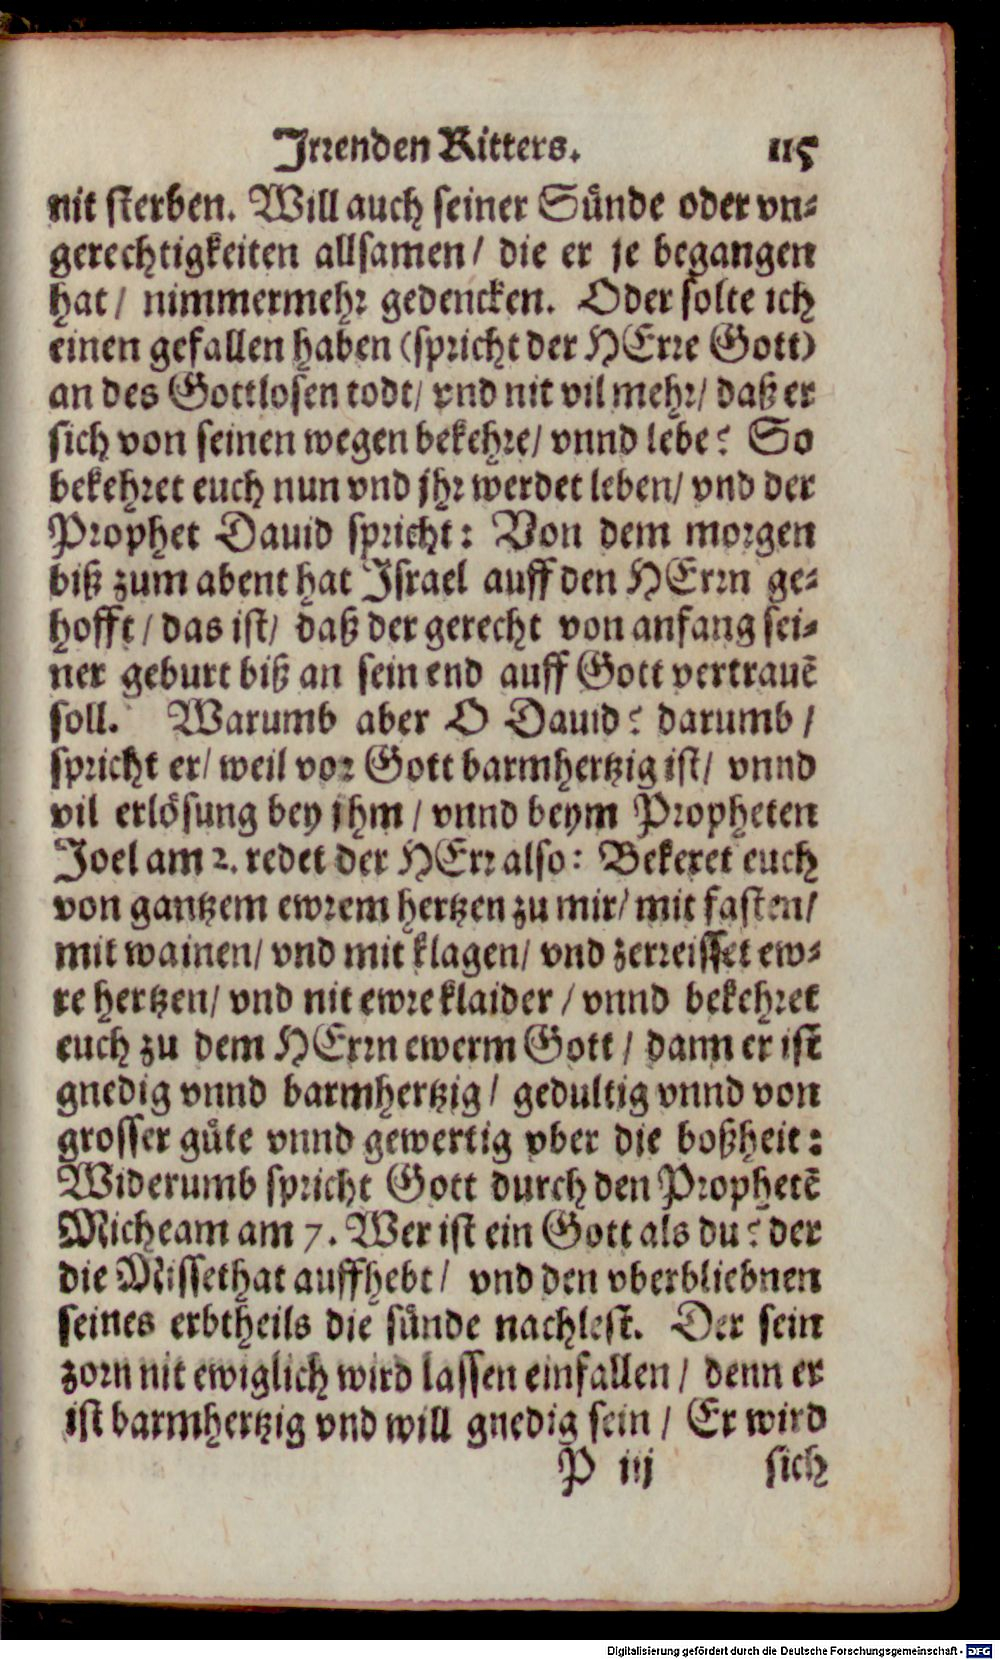 Irrenden Ritters. 115
nit sterben. Will auch seiner Sünde oder vn-
gerechtigkeiten allsamen/ die er je begangen
hat/ nimmermehr gedencken. Oder solte ich
einen gefallen haben (spricht der HErre Gott)
an des Gottlosen todt/ vnd nit vil mehr/ daß er
sich von seinen wegen bekehre/ vnnd lebe? So
bekehret euch nun vnd jhr werdet leben/ vnd der
Prophet Dauid spricht: Von dem morgen
biß zum abent hat Israel auff den HErrn ge-
hofft/ das ist/ daß der gerecht von anfang sei-
ner geburt biß an sein end auff Gott vertrauẽ
soll. Warumb aber O Dauid? darumb/
spricht er/ weil vor Gott barmhertzig ist/ vnnd
vil erlösung bey jhm/ vnnd beym Propheten
Joel am 2. redet der HErr also: Bekeret euch
von gantzem ewrem hertzen zu mir/ mit fasten/
mit wainen/ vnd mit klagen/ vnd zerreisset ew-
re hertzen/ vnd nit ewre klaider/ vnnd bekehret
euch zu dem HErrn ewerm Gott/ dann er ist
gnedig vnnd barmhertzig/ gedultig vnnd von
grosser güte vnnd gewertig vber die boßheit:
Widerumb spricht Gott durch den Prophetẽ
Micheam am 7. Wer ist ein Gott als du? der
die Missethat auffhebt/ vnd den vberbliebnen
seines erbtheils die sünde nachlest. Der sein
zorn nit ewiglich wird lassen einfallen/ denn er
ist barmhertzig vnd will gnedig sein/ Er wird
P iij sich
Digitalisierung gefördert durch die Deutsche Forschungsgemeinschaft - DFG